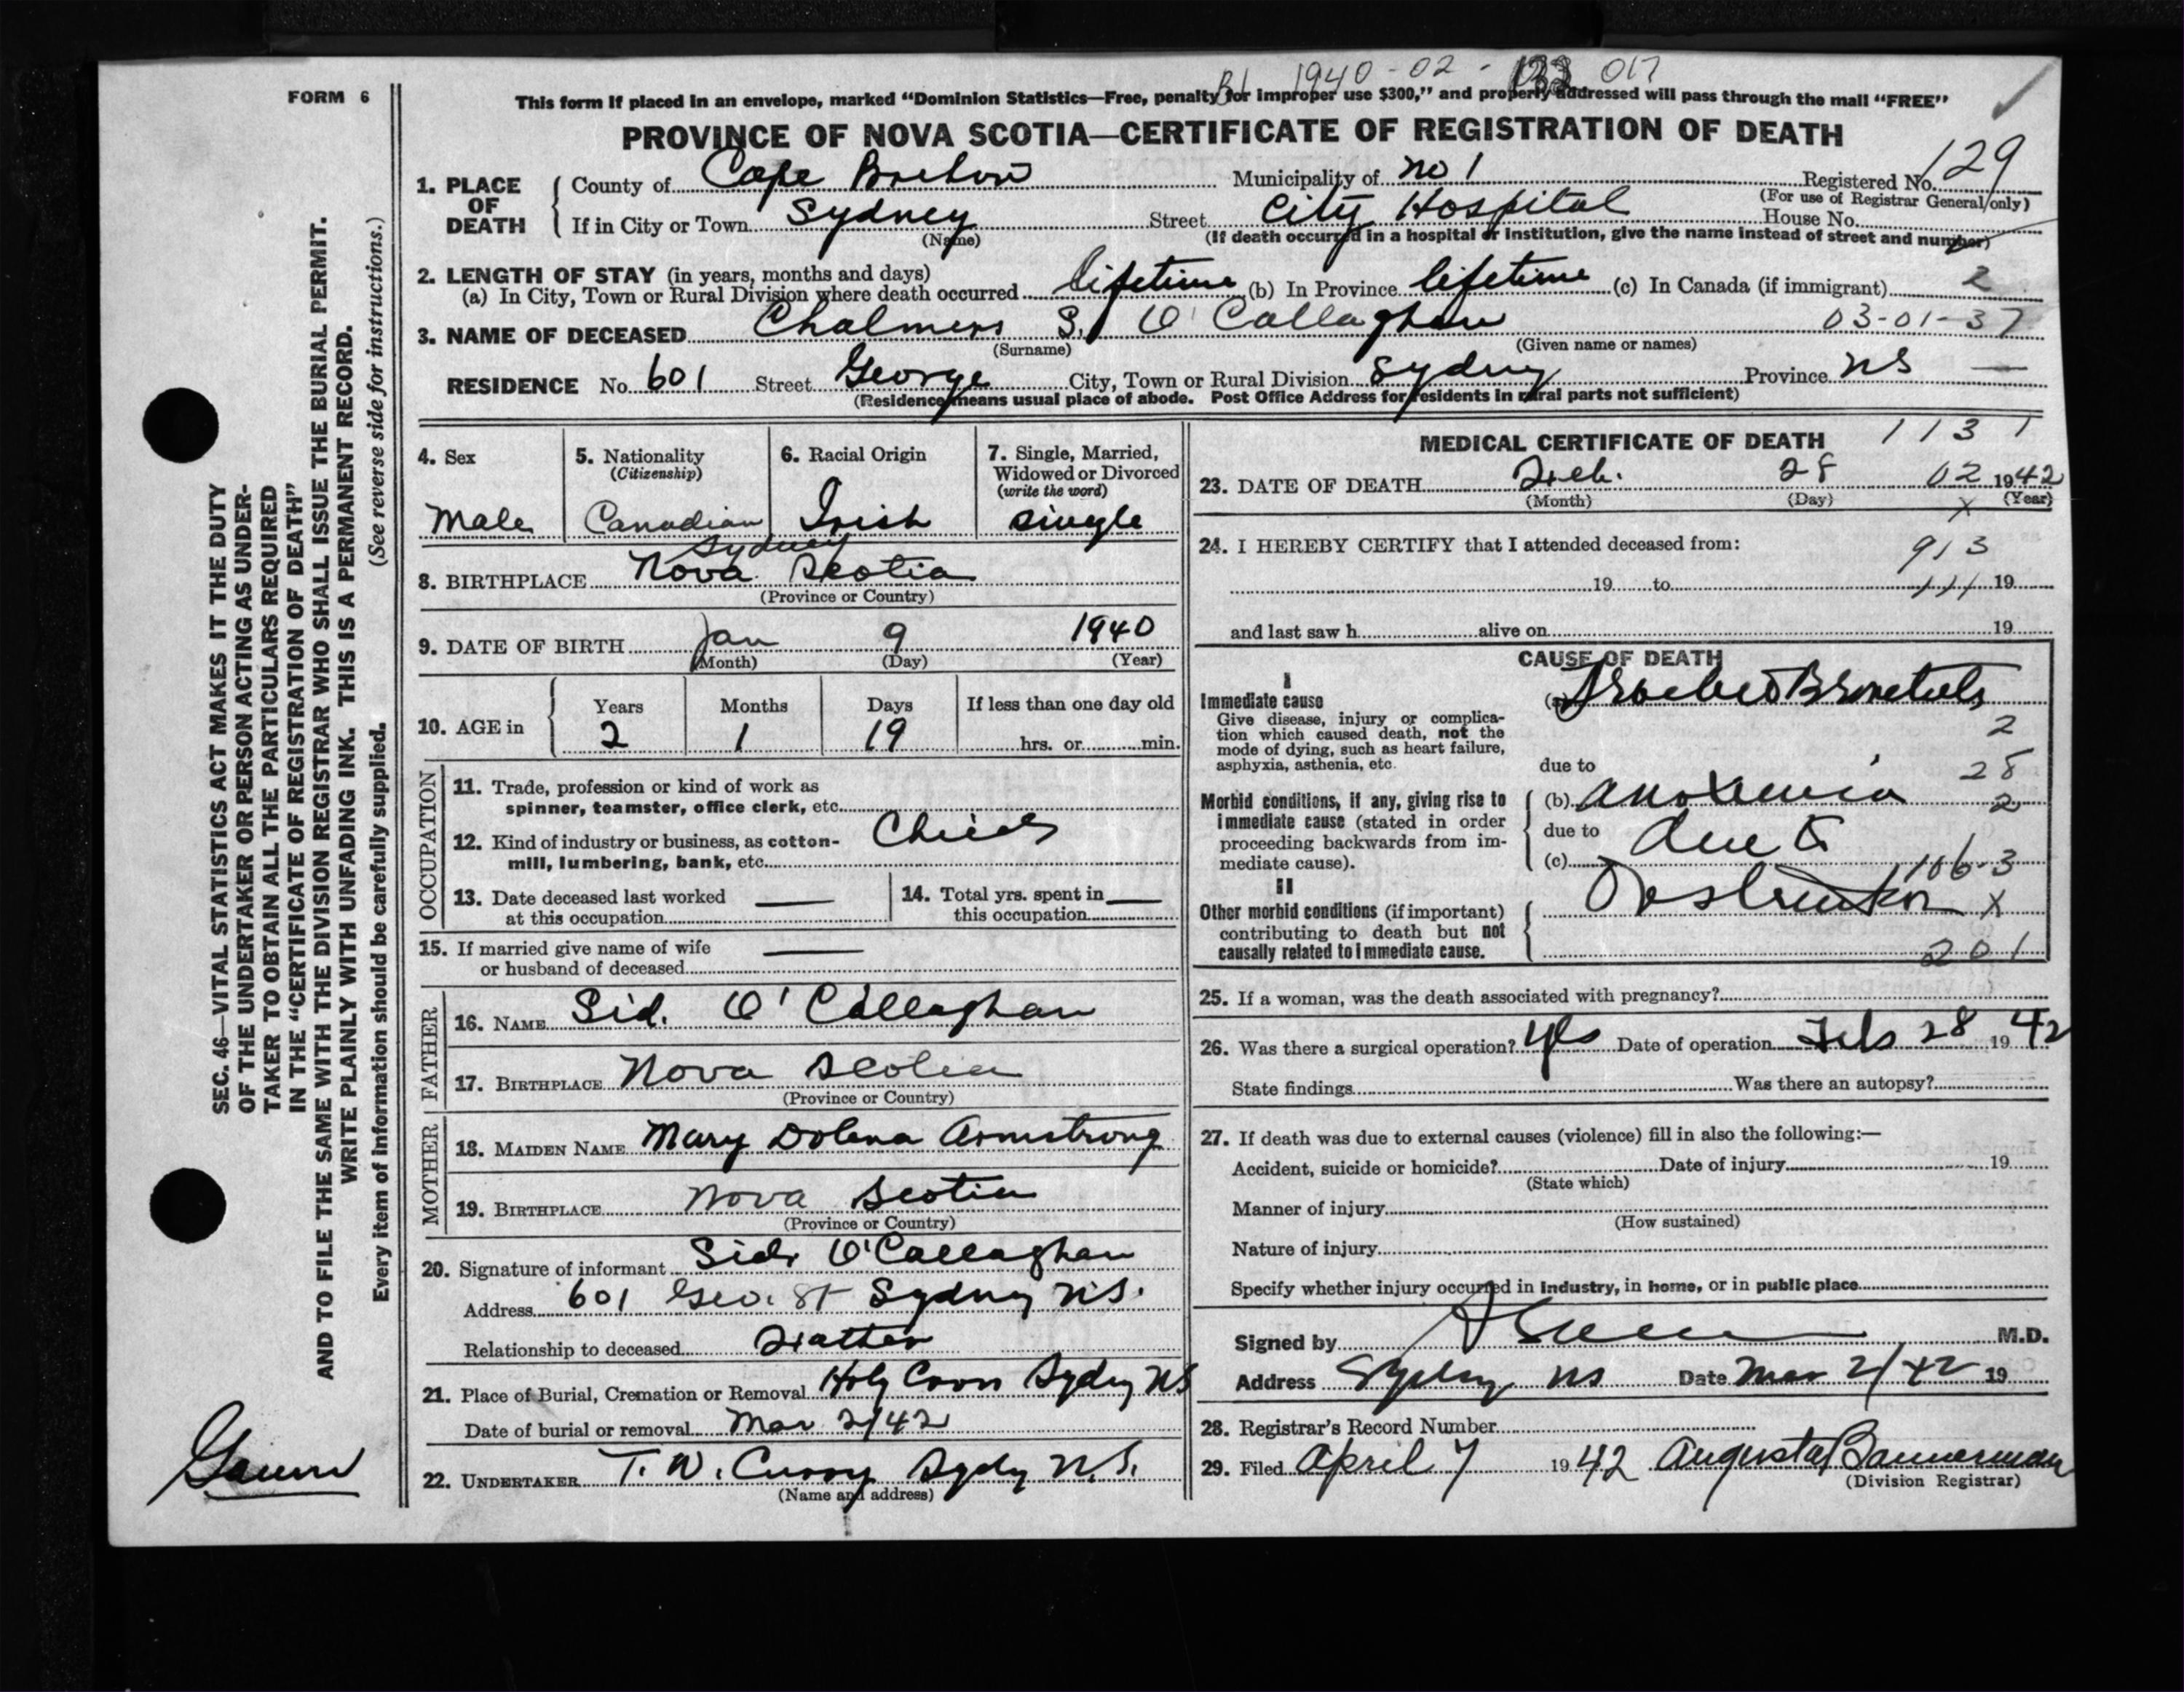 Bt 1940-02-133 017
FORM 6
This form if placed in an envelope, marked “Dominion Statistics—Free, penalty for improper use $300,” and properly addressed will pass through the mail “FREE”
PROVINCE OF NOVA SCOTIA—CERTIFICATE OF REGISTRATION OF DEATH
1. PLACE OF DEATH
County of Cape Breton Municipality of No 1 Registered No. 129
(For use of Registrar General only)
If in City or Town Sydney Street City Hospital House No.
(Name) (If death occurred in a hospital or institution, give the name instead of street and number)
2. LENGTH OF STAY (in years, months and days)
(a) In City, Town or Rural Division where death occurred lifetime (b) In Province lifetime (c) In Canada (if immigrant) 2
3. NAME OF DECEASED Chalmers S. O'Callaghan 03-01-37
(Surname) (Given name or names)
RESIDENCE No. 601 Street George City, Town or Rural Division Sydney Province NS —
(Residence means usual place of abode. Post Office Address for residents in rural parts not sufficient)
4. Sex
Male
5. Nationality
(Citizenship)
Canadian
6. Racial Origin
Irish
7. Single, Married,
Widowed or Divorced
(write the word)
single
8. BIRTHPLACE Sydney
Nova Scotia
(Province or Country)
9. DATE OF BIRTH Jan 9 1940
(Month) (Day) (Year)
10. AGE in
Years Months Days If less than one day old
2 1 19 hrs. or min.
OCCUPATION
11. Trade, profession or kind of work as
spinner, teamster, office clerk, etc.
12. Kind of industry or business, as cotton-
mill, lumbering, bank, etc. Child
13. Date deceased last worked —
at this occupation
14. Total yrs. spent in —
this occupation
15. If married give name of wife —
or husband of deceased
FATHER
16. NAME Sid. O'Callaghan
17. BIRTHPLACE Nova Scotia
(Province or Country)
MOTHER
18. MAIDEN NAME Mary Dolena Armstrong
19. BIRTHPLACE Nova Scotia
(Province or Country)
20. Signature of informant Sid. O'Callaghan
Address 601 Geo. St Sydney N.S.
Relationship to deceased Father
21. Place of Burial, Cremation or Removal Holy Cross Sydney NS
Date of burial or removal Mar 2/42
22. UNDERTAKER T. W. Curry Sydney N.S.
(Name and address)
MEDICAL CERTIFICATE OF DEATH 1131
23. DATE OF DEATH Feb. 28 02 1942
(Month) (Day) x (Year)
24. I HEREBY CERTIFY that I attended deceased from: 913
19 to 111 19
and last saw h alive on 19
CAUSE OF DEATH
I
Immediate cause
Give disease, injury or complica-
tion which caused death, not the
mode of dying, such as heart failure,
asphyxia, asthenia, etc.
(a) 2
due to 28
Morbid conditions, if any, giving rise to
immediate cause (stated in order
proceeding backwards from im-
mediate cause).
(b) Anoxemia 2
due to due to
(c) 106-3
II
Other morbid conditions (if important)
contributing to death but not
causally related to immediate cause.
Obstruction x
201
25. If a woman, was the death associated with pregnancy?
26. Was there a surgical operation? Yes Date of operation Feb 28 1942
State findings Was there an autopsy?
27. If death was due to external causes (violence) fill in also the following:—
Accident, suicide or homicide? Date of injury 19
(State which)
Manner of injury
(How sustained)
Nature of injury
Specify whether injury occurred in industry, in home, or in public place
Signed by M.D.
Address Sydney NS Date Mar 2/42 19
28. Registrar's Record Number
29. Filed April 7 1942 Augusta Bannerman
(Division Registrar)
SEC. 46—VITAL STATISTICS ACT MAKES IT THE DUTY
OF THE UNDERTAKER OR PERSON ACTING AS UNDER-
TAKER TO OBTAIN ALL THE PARTICULARS REQUIRED
IN THE “CERTIFICATE OF REGISTRATION OF DEATH”
AND TO FILE THE SAME WITH THE DIVISION REGISTRAR WHO SHALL ISSUE THE BURIAL PERMIT.
WRITE PLAINLY WITH UNFADING INK. THIS IS A PERMANENT RECORD.
Every item of information should be carefully supplied. (See reverse side for instructions.)